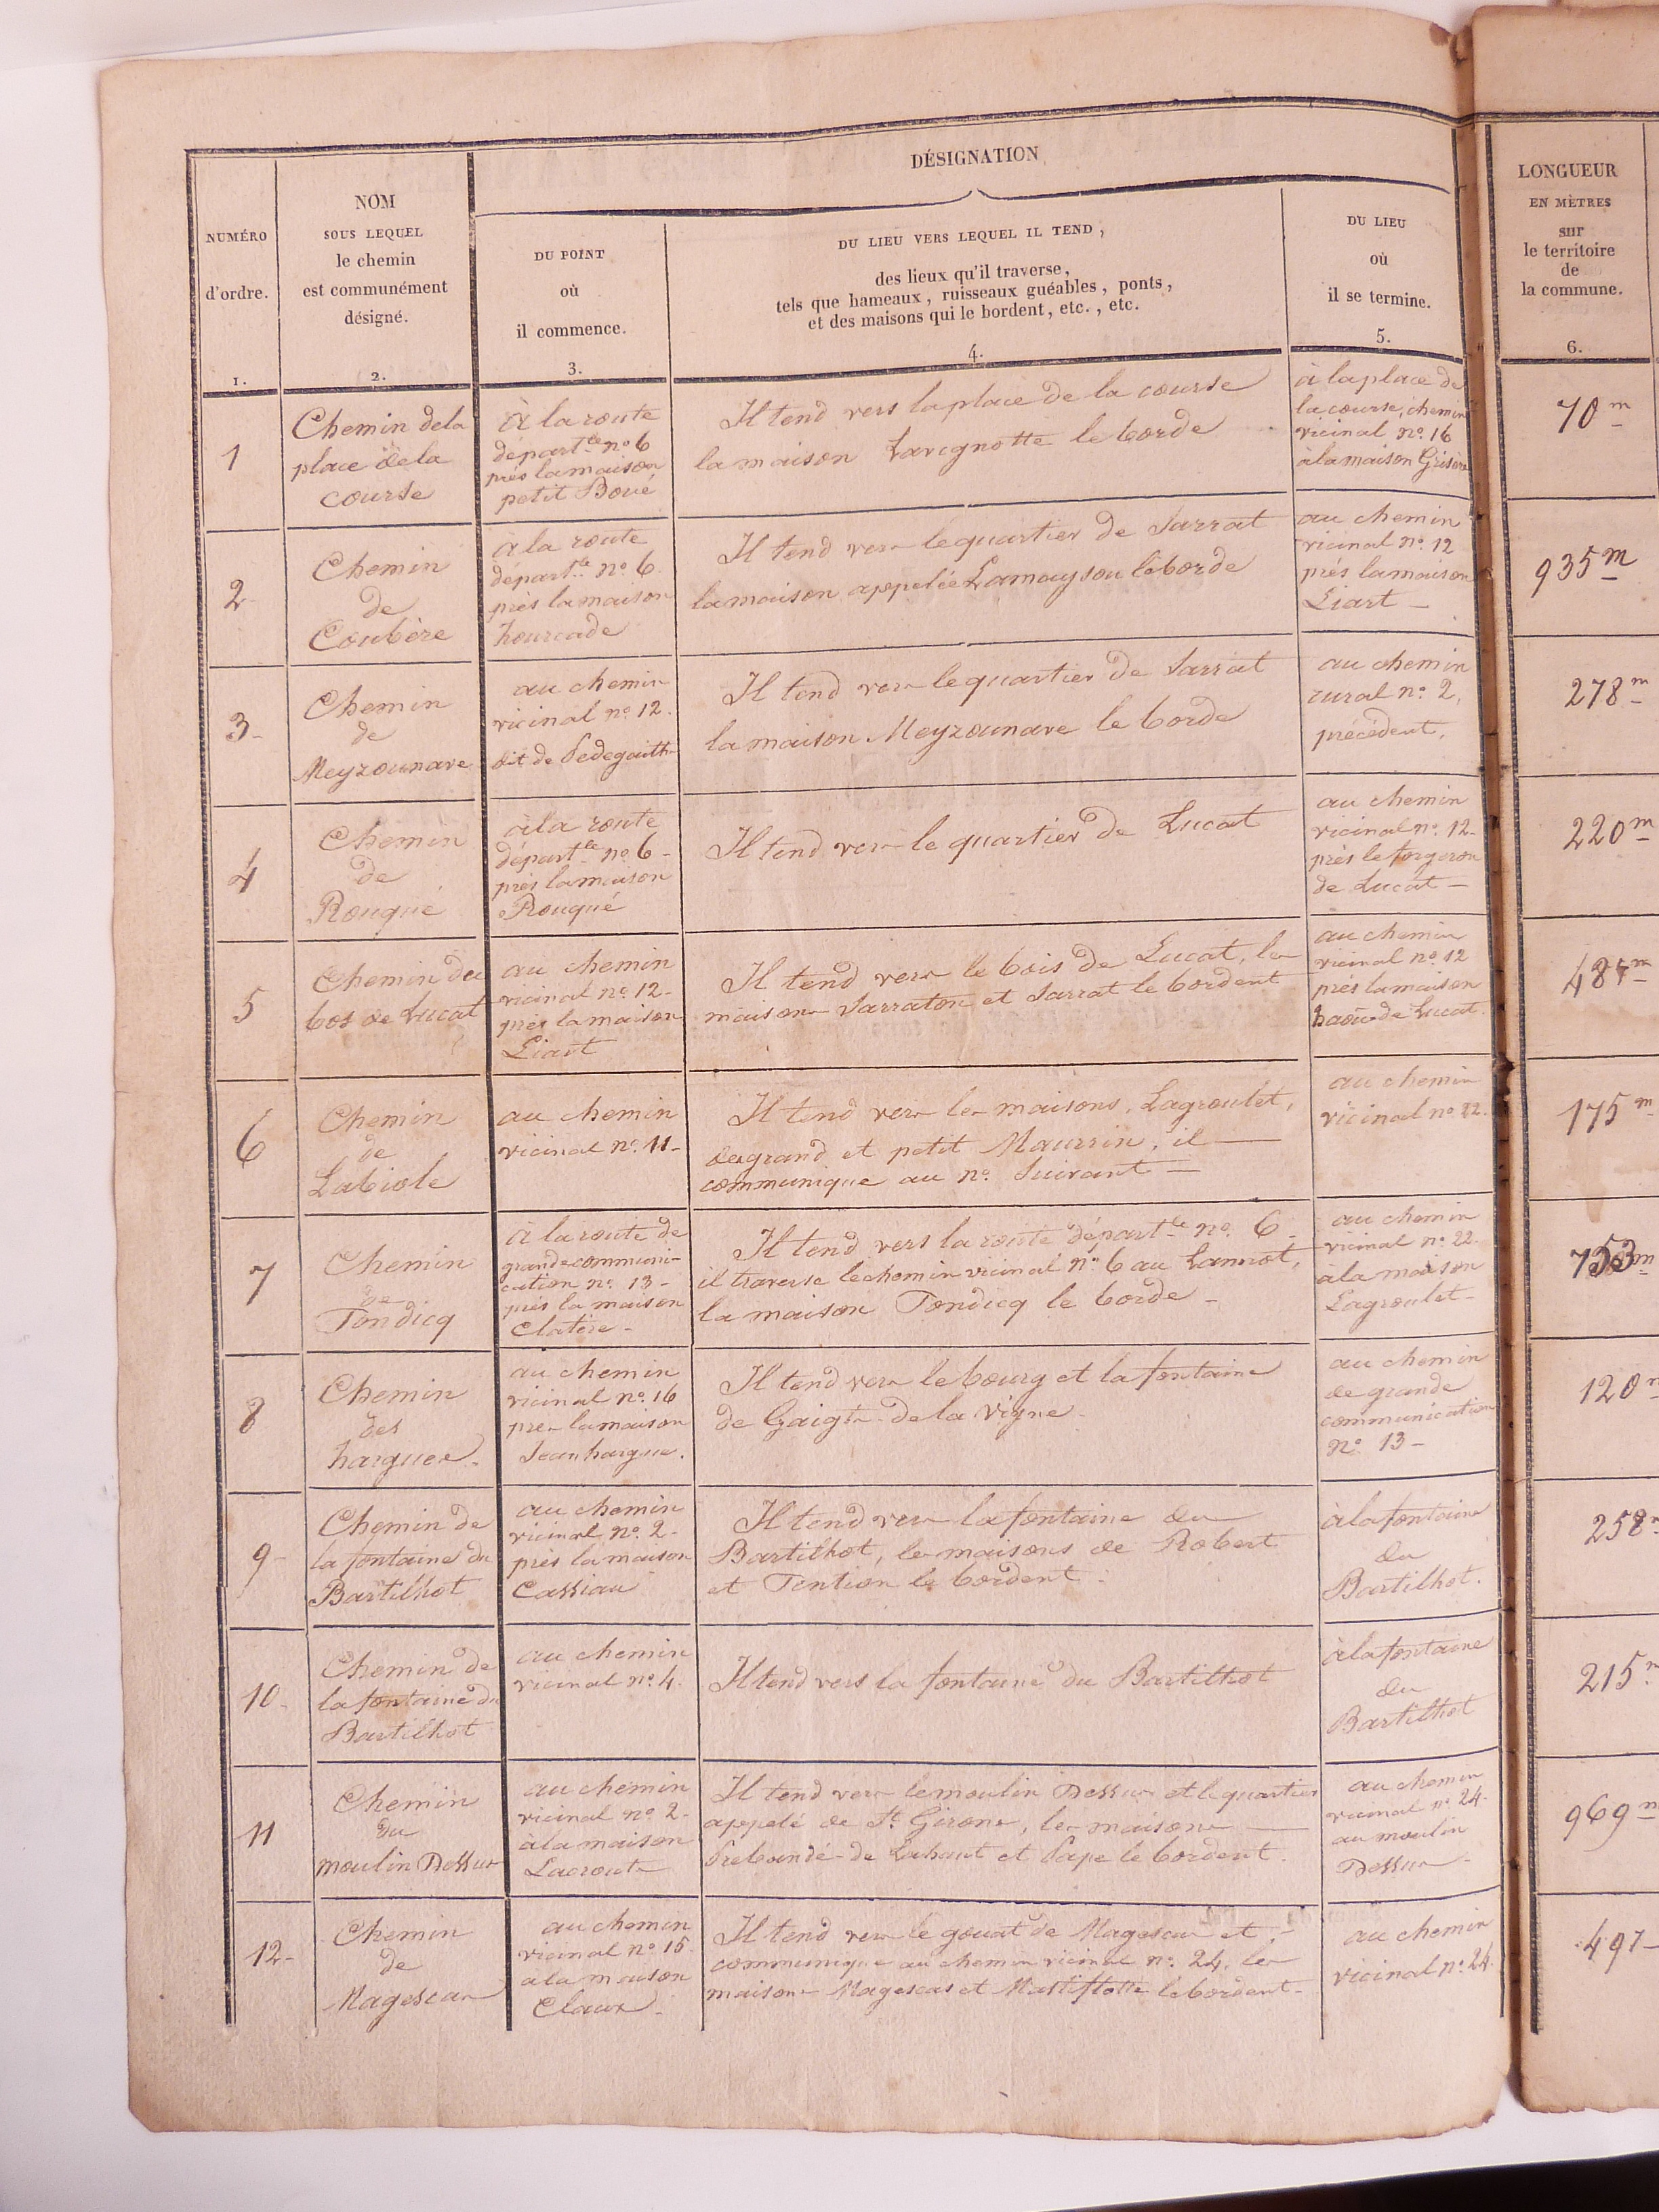 DÉSIGNATION
NUMÉRO
d'ordre.
1.
NOM
SOUS LEQUEL
le chemin
est communément
désigné.
2.
DU POINT
où
il commence.
3.
DU LIEU VERS LEQUEL IL TEND,
des lieux qu'il traverse,
tels que hameaux, ruisseaux guéables, ponts,
et des maisons qui le bordent, etc., etc.
4.
DU LIEU
où
il se termine.
5.
LONGUEUR
EN MÈTRES
sur
le territoire
de
la commune.
6.
1
Chemin de la
place de la
course
à la route
départ.le no. 6
près la maison
petit Boué
Il tend vers la place de la course
la maison Lavignotte le borde
à la place de
la course, chemin
vicinal no. 16
à la maison
70 m
2
Chemin
de
Coubère
à la route
départ.le no. 6
près la maison
hourcade
Il tend vers le quartier de Sarrat
la maison appelée Lamaysou le borde
au chemin
vicinal no. 12
près la maison
Liart
935 m
3
Chemin
de
Meyzounave
au chemin
vicinal no. 12.
dit de
Il tend vers le quartier de Sarrat
la maison Meyzounave le borde
au chemin
rural no. 2,
précédent,
278 m
4
Chemin
de
Rouqué
à la route
départ.le no. 6
près la maison
Rouqué
Il tend vers le quartier de Lucat
au chemin
vicinal no. 12
près le forgeron
de Lucat
220 m
5
Chemin du
bos de Lucat
au chemin
vicinal no. 12
près la maison
Liart
Il tend vers le bois de Lucat, les
maisons Sarraton et Sarrat le bordent
au chemin
vicinal no. 12
près la maison
de Lucat
m
6
Chemin
de
Labiole
au chemin
vicinal no. 11
Il tend vers les maisons, Lagroulet,
de grand et petit Maurrin, il
communique au no. suivant
au chemin
vicinal no. 22.
175 m
7
Chemin
de
Tondicq
à la route de
grande communi-
cation no. 13
près la maison
Clatère
Il tend vers la route départ.le no. 6
il traverse le chemin vicinal no. 6 au Lannot,
la maison Tondicq le borde
au chemin
vicinal no. 22.
à la maison
Lagroulet
753 m
8
Chemin
des
hargues
au chemin
vicinal no. 16
près la maison
Jean hargue.
Il tend vers le bourg et la fontaine
de de la Vigne
au chemin
de grande
communication
no. 13
120 m
9
Chemin de
la fontaine du
Bartilhot
au chemin
vicinal no. 2
près la maison
Cassiau
Il tend vers la fontaine du
Bartilhot, les maisons de Robert
et Tention le bordent
à la fontaine
du
Bartilhot.
258
10
Chemin de
la fontaine du
Bartilhot
au chemin
vicinal no. 4.
Il tend vers la fontaine du Bartilhot
à la fontaine
du
Bartilhot
215
11
Chemin
du
moulin Dessus
au chemin
vicinal no. 2
à la maison
Lacrouts
Il tend vers le moulin Dessus et le quartier
appelé de St. Girons, les maisons
de Lahaut et Pape le bordent.
au chemin
vicinal no. 24
au moulin
Dessus
969
12
Chemin
de
Magescas
au chemin
vicinal no. 15
à la maison
Claux
Il tend vers le gouat de Magescas et
communique au chemin vicinal no. 24, les
maisons Magescas et le bordent
au chemin
vicinal no. 24
497